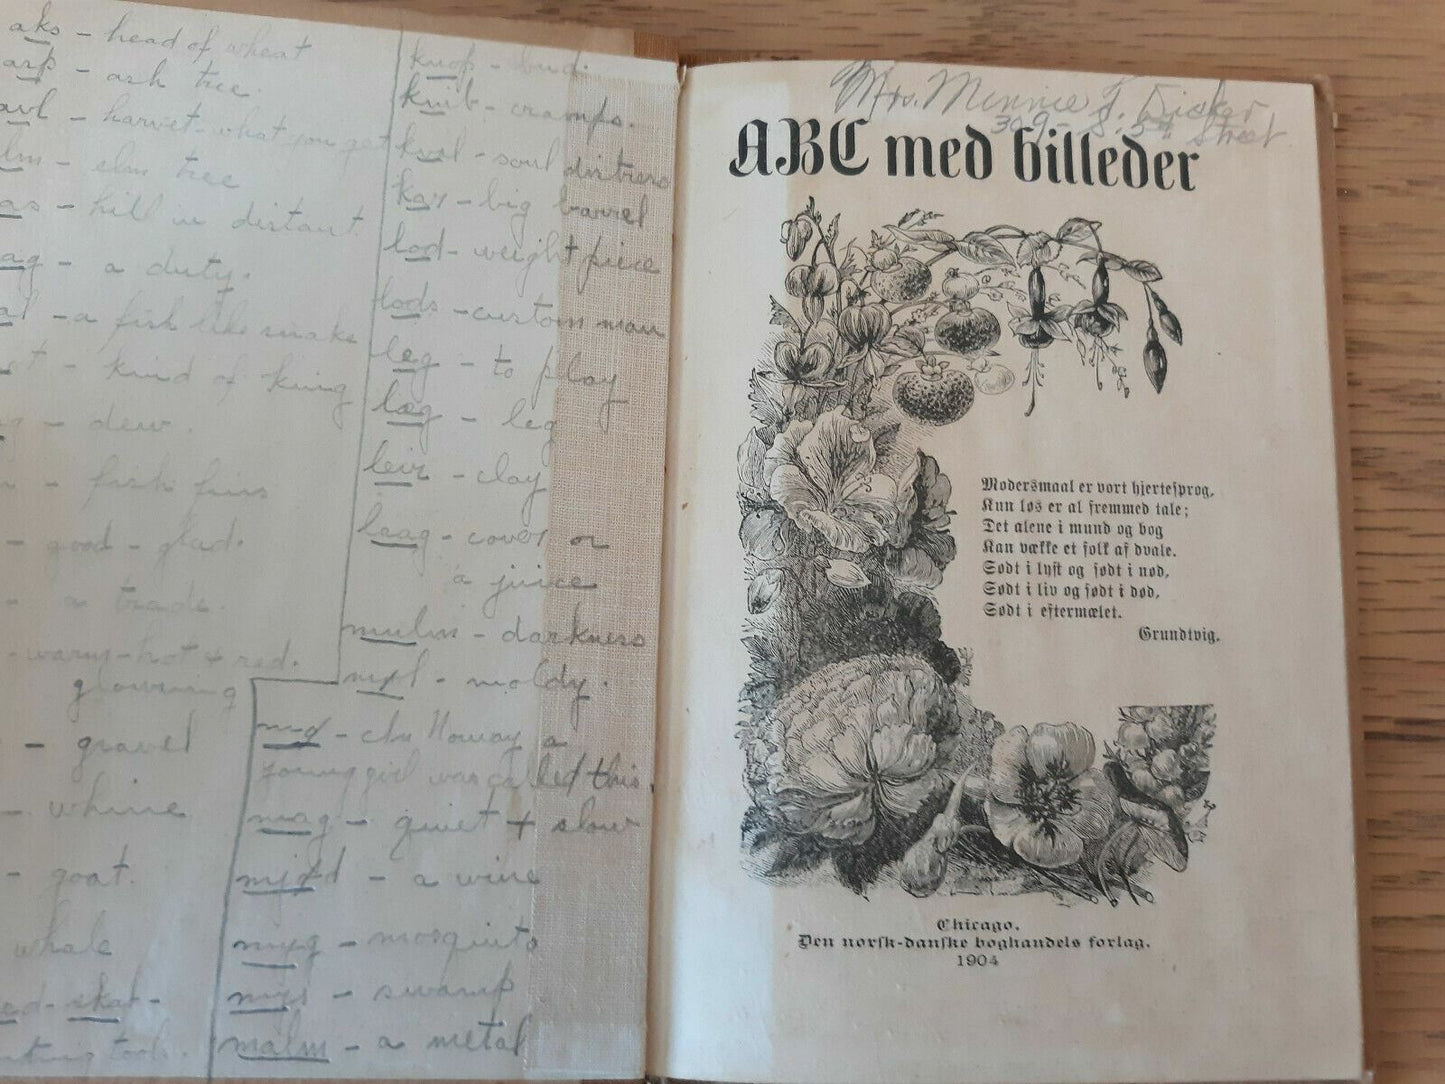 aks - head of wheat
asp - ash tree.
avl - harvet - what you get
lm - elm tree
as - hill in distant
ag - a duty.
al - a fish like snake
t - kind of king
g - dew.
- fish fins
- good - glad.
- a trade.
- warm - hot + red.
glowening
- gravel
- whine
- goat.
whale
ed - skat -
ting tools.
knop - bud.
knib - cramps.
kval - soul distress
kar - big barrel
lod - weight piece
lods - custom man
leg - to play
læg - leg
leir - clay
laag - cover or
a juice
mulm - darkness
- moldy.
mø - in Norway a
young girl was called this.
mag - quiet + slow
mjød - a wine
myg - mosquito
myr - swamp
malm - a metal
Mrs. Minnie J.
309 - Street
ABC med billeder
Modersmaal er vort hjertesprog,
Kun løs er al fremmed tale;
Det alene i mund og bog
Kan vække et folk af dvale.
Sødt i lyst og sødt i nød,
Sødt i liv og sødt i død,
Sødt i eftermælet.
Grundtvig.
Chicago.
Den norsk-danske boghandels forlag.
1904